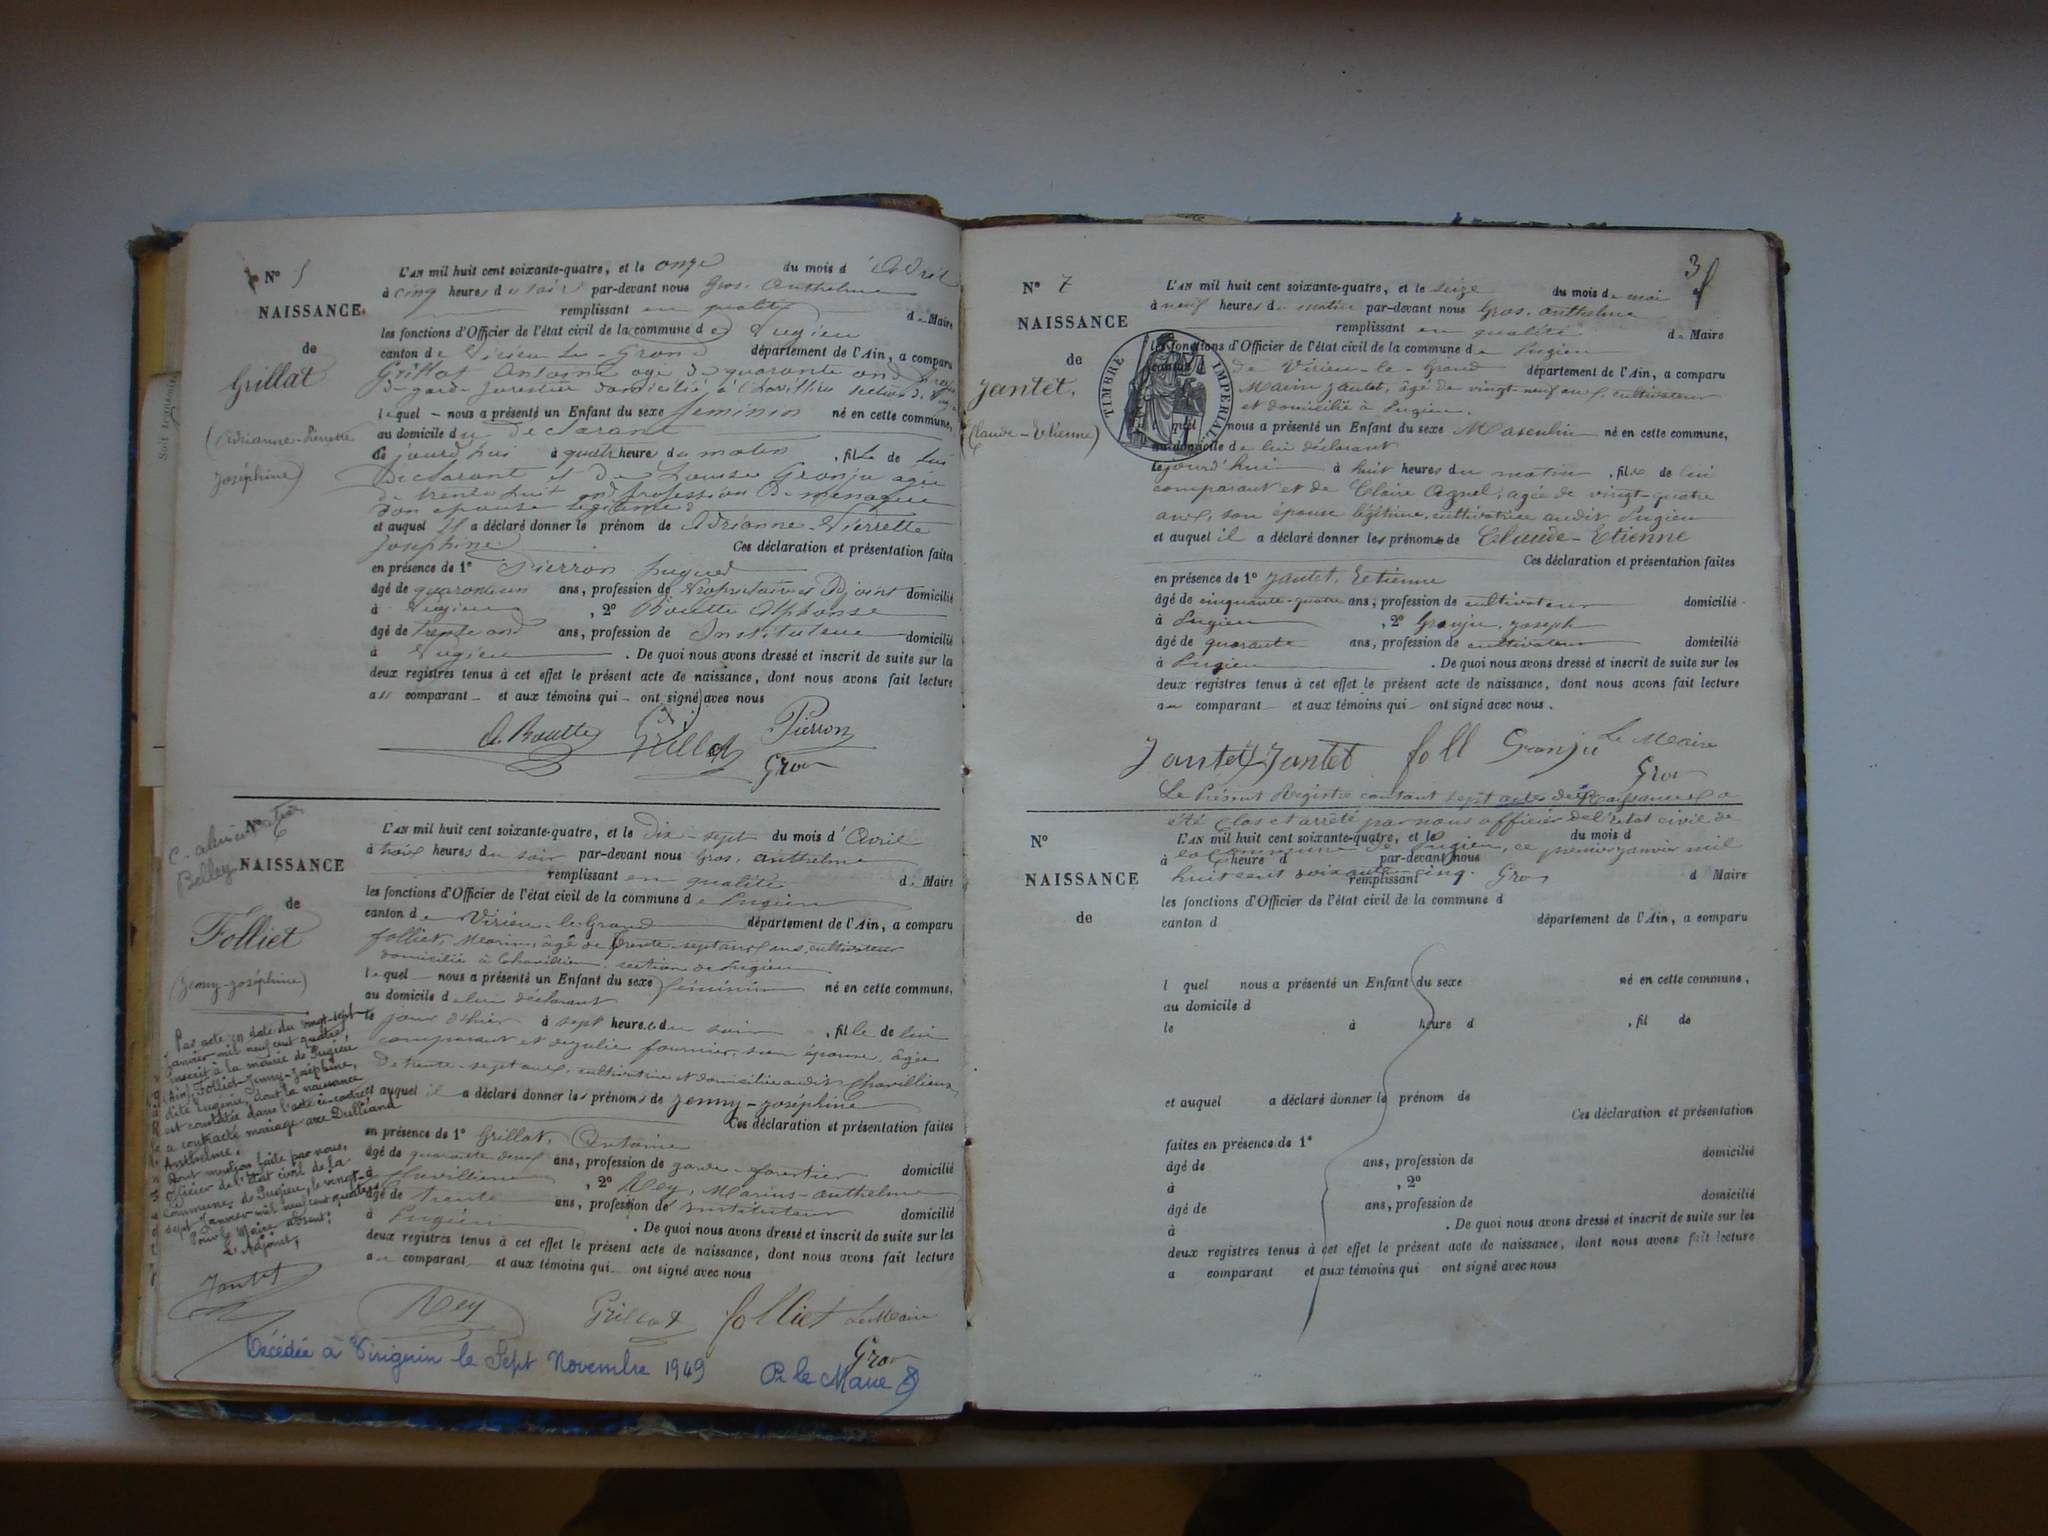 N° 5
NAISSANCE
de
Grillat
(Adrianne-Pierrette
Joséphine)
L'AN mil huit cent soixante-quatre, et le onze du mois d'Avril
à cinq heures du soir par-devant nous Gros, Anthelme
remplissant en qualité de Maire
les fonctions d'Officier de l'état civil de la commune de Pugieu
canton de Virieu-le-Grand département de l'Ain, a comparu
Grillat Antoine agé de quarante
de garde forestier domicilié à
lequel nous a présenté un Enfant du sexe feminin né en cette commune,
au domicile du declarant
le jourd'hui à quatre heure du matin, fille de lui
Declarant et de Louise Granju agée
de trente huit ans profession de menagere
son epouse legitime
et auquel il a déclaré donner le prénom de Adrianne-Pierrette
Joséphine Ces déclaration et présentation faites
en présence de 1° Pierron
âgé de ans, profession de Proprietaire Adjoint domicilié
à Pugieu, 2° Boutte Alphonse
âgé de trente ans, profession de Instituteur domicilié
à Pugieu. De quoi nous avons dressé et inscrit de suite sur les
deux registres tenus à cet effet le présent acte de naissance, dont nous avons fait lecture
au comparant et aux témoins qui ont signé avec nous
A. Boutte Grillat Pierron
Gros
C. alimentation
Belley
N° 6
NAISSANCE
de
Folliet
(Jenny-Joséphine)
L'AN mil huit cent soixante-quatre, et le dix-sept du mois d'Avril
à trois heures du soir par-devant nous Gros, anthelme
remplissant en qualité de Maire
les fonctions d'Officier de l'état civil de la commune de Pugieu
canton de Virieu-le-Grand département de l'Ain, a comparu
folliet, Marin, âgé de trente-sept ans, cultivateur
domicilié à Chavillieu, section de Pugieu
lequel nous a présenté un Enfant du sexe féminin né en cette commune,
au domicile de lui déclarant
le jour d'hier à sept heures du soir, fille de lui
comparant et de julie fournier, son épouse, âgée
de trente-sept ans, cultivatrice et domiciliée audit Chavillieu
et auquel il a déclaré donner les prénoms de Jenny-joséphine
Ces déclaration et présentation faites
en présence de 1° Grillat, Antoine
âgé de quarante-deux ans, profession de garde-forestier domicilié
à Chavillieu, 2° Rey, Marius-anthelme
âgé de trente ans, profession de instituteur domicilié
à Pugieu. De quoi nous avons dressé et inscrit de suite sur les
deux registres tenus à cet effet le présent acte de naissance, dont nous avons fait lecture
au comparant et aux témoins qui ont signé avec nous
Par acte en date du vingt-sept
Janvier mil neuf cent quatre,
inscrit à la mairie de Pugieu
(Ain), Folliet-Jenny-Joséphine,
dite Eugénie, dont la naissance
est constatée dans l'acte ci-contre,
a contracté mariage avec Dulliand
Anthelme.
Dont mention faite par nous,
Officier de l'état civil de la
commune de Pugieu, le vingt-
sept Janvier mil neuf cent quatre
Pour le Maire absent:
L'Adjoint,
Jantet
Rey Grillat folliet Le Maire
Gros
Décédée à Virignin le Sept Novembre 1949 Pr le Maire
3
N° 7
NAISSANCE
de
Jantet,
(Claude-Etienne)
TIMBRE IMPERIAL
L'AN mil huit cent soixante-quatre, et le seize du mois de mai
à neuf heures du matin par-devant nous Gros, anthelme
remplissant en qualité de Maire
les fonctions d'Officier de l'état civil de la commune de Pugieu
canton de Virieu-le-Grand département de l'Ain, a comparu
Marin Jantet, âgé de vingt-neuf ans, cultivateur
et domicilié à Pugieu,
lequel nous a présenté un Enfant du sexe Masculin né en cette commune,
au domicile de lui déclarant
le jourd'hui à huit heures du matin, fils de lui
comparant et de Claire Aznel, agée de vingt-quatre
ans, son épouse légitime, cultivatrice audit Pugieu
et auquel il a déclaré donner les prénoms de Claude-Etienne
Ces déclaration et présentation faites
en présence de 1° Jantet, Etienne
âgé de cinquante-quatre ans, profession de cultivateur domicilié
à Pugieu, 2° Granju, Joseph
âgé de quarante ans, profession de cultivateur domicilié
à Pugieu. De quoi nous avons dressé et inscrit de suite sur les
deux registres tenus à cet effet le présent acte de naissance, dont nous avons fait lecture
au comparant et aux témoins qui ont signé avec nous.
Jantet Jantet Granju Le Maire
Gros
Le Présent Registre contant sept actes de Naissances a
été clos et arrêté par nous officier de l'etat civil de
la commune de Pugieu, ce premier janvier mil
huit cent soixante-cinq. Gros
N°
NAISSANCE
de
L'AN mil huit cent soixante-quatre, et le du mois d
à heure d par-devant nous
remplissant d Maire
les fonctions d'Officier de l'état civil de la commune d
canton d département de l'Ain, a comparu
l quel nous a présenté un Enfant du sexe né en cette commune,
au domicile d
le à heure d, fil de
et auquel a déclaré donner le prénom de
Ces déclaration et présentation
faites en présence de 1°
âgé de ans, profession de domicilié
à, 2°
âgé de ans, profession de domicilié
à. De quoi nous avons dressé et inscrit de suite sur les
deux registres tenus à cet effet le présent acte de naissance, dont nous avons fait lecture
a comparant et aux témoins qui ont signé avec nous